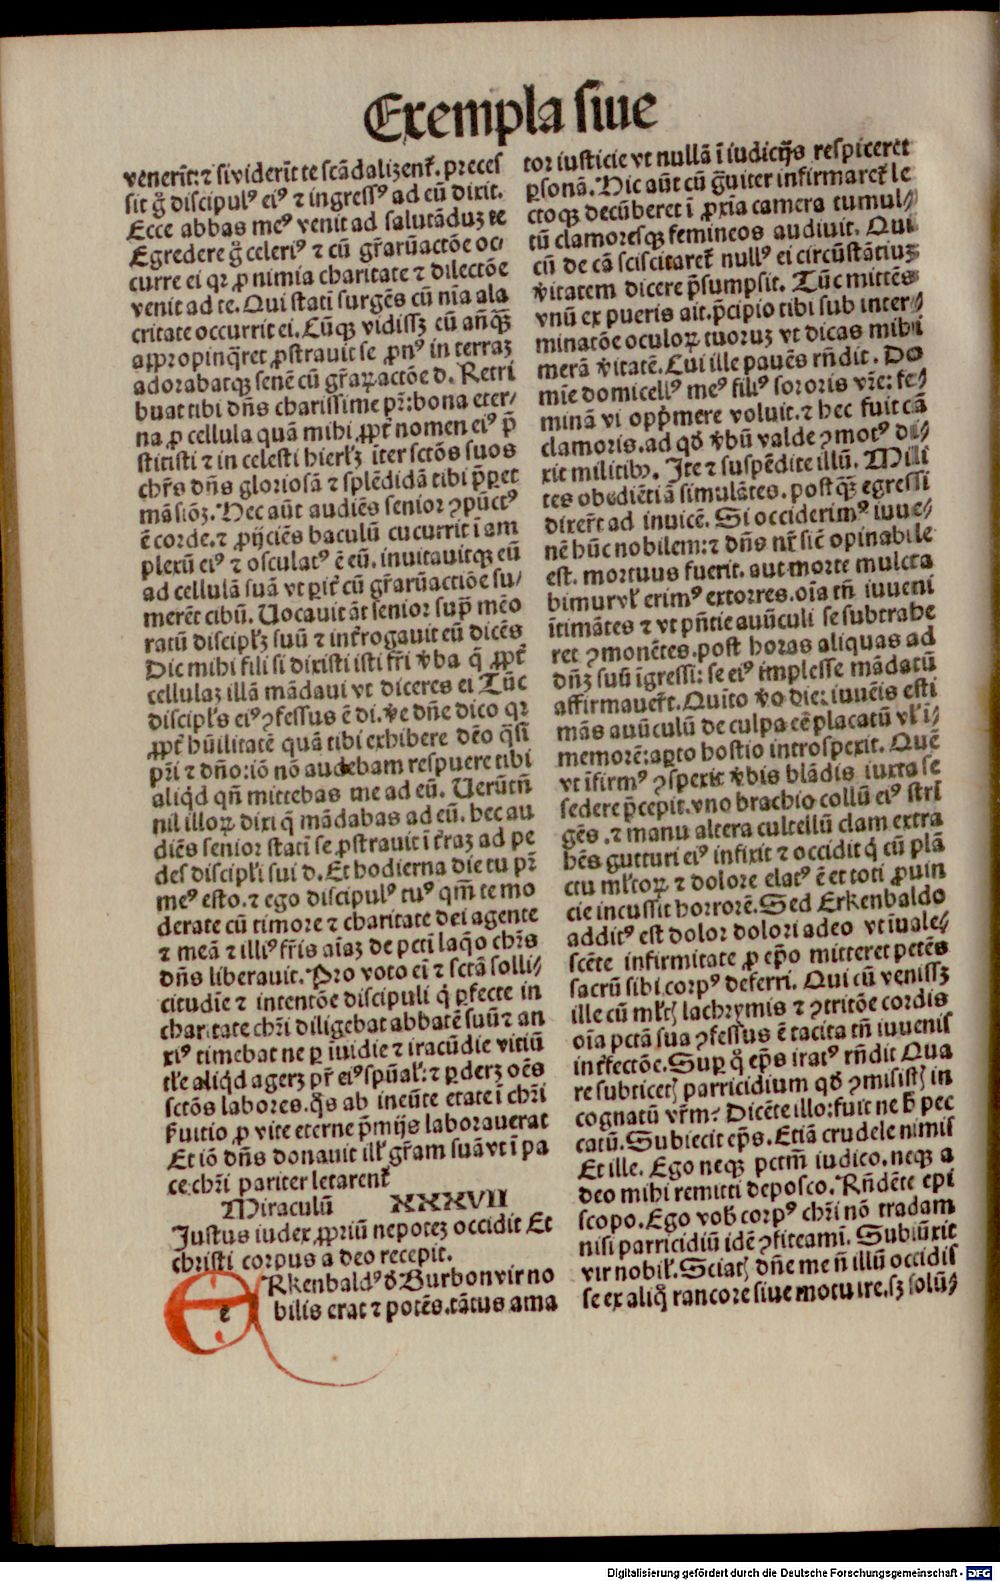 Exempla siue
venerīt: ⁊ si viderīt te scādalizenť. preces
sit ḡ discipulꝰ eiꝰ ⁊ ingressꝰ ad eū dixit.
Ecce abbas meꝰ venit ad salutāduꝫ te
Egredere ḡ celeriꝰ ⁊ cū gr̄arūactōe oc/
curre ei qꝛ ꝓ nimia charitate ⁊ dilectōe
venit ad te. Qui stati surgēs cū nīa ala
critate occurrit ei. Cūqꝫ vidissꝫ eū an̄qꝫ̄
appropinq̄ret ꝓstrauit se ꝓnꝰ in terraꝫ
adorabatqꝫ senē cū gr̄aꝝactōe d. Retri
buat tibi dn̄s charissime pr̄: bona eter/
na ꝓ cellula quā mihi ꝓpť nomen eiꝰ p̄
stitisti ⁊ in celesti hierłꝫ iter sctōs suos
chr̄s dn̄s gloriosā ⁊ splēdidā tibi p̄ꝑet
māsiōꝫ. Hec aūt audiēs senior ꝯpūctꝰ
ē corde. ⁊ ꝓijciēs baculū cucurrit ī am
plexū eiꝰ ⁊ osculatꝰ ē eū. inuitauitqꝫ eū
ad cellulā suā vt ꝑiť cū gr̄arūactiōe su/
merēt cibū. Uocauit āt senior supͣ mēo
ratū discipłꝫ suū ⁊ inťrogauit eū dicēs
Dic mihi fili si dixisti isti fr̄i v̄ba q̄ ꝓpť
cellulaꝫ illā mādaui vt diceres ei Tūc
discipłs eiꝰ ꝯfessus ē di. v̄e dn̄e dico qꝛ
ꝓpť hūilitatē quā tibi exhibere dēo q̄si
pr̄i ⁊ dn̄o: iō nō audebam respuere tibi
aliq̇d qn̄ mittebas me ad eū. Uerūtn̄
nil illoꝝ dixi q̄ mādabas ad eū. hec au
diēs senior stati se ꝓstrauit ī ťraꝫ ad pe
des discipłi sui d. Et hodierna die tu pr̄
meꝰ esto. ⁊ ego discipulꝰ tuꝰ qm̄ te mo
derate cū timore ⁊ charitate dei agente
⁊ meā ⁊ illiꝰ fr̄is aīaꝫ de pcti laq̇o chr̄s
dn̄s liberauit. Pro voto eī ⁊ sctā solli/
citudīe ⁊ intentōe discipuli q̇ ꝑfecte in
charitate chr̄i diligebat abbatē suū ⁊ an
xiꝰ timebat ne ꝑ inuidie ⁊ iracūdie vitiū
tłe aliq̇d agerꝫ pr̄ eiꝰ spūał: ⁊ ꝑderꝫ oēs
sctōs labores. q̇s ab ineūte etate ī chr̄i
ẜuitio ꝓ vite eterne p̄mijs laborauerat
Et iō dn̄s donauit ill' gr̄am suā vt ī pa
ce chr̄i pariter letarenť
Miraculū XXXVII
Justus iudex ꝓpriū nepoteꝫ occidit Et
christi corpus a deo recepit.
ERkenbaldꝰ ð Burbon vir no
bilis erat ⁊ potēs. tātus ama
tor iusticie vt nullā ī iudicijs respiceret
ꝑsonā. Hic aūt cū ḡuiter infirmareť le
ctoqꝫ decūberet ī ꝓxīa camera tumul/
tū clamoresqꝫ femineos audiuit. Qui
cū de cā sciscitareť nullꝰ ei circūstātiuꝫ
v̄itatem dicere p̄sumpsit. Tūc mittēs
vnū ex pueris ait. p̄cipio tibi sub inter/
minatōe oculoꝝ tuoruꝫ vt dicas mihi
merā v̄itatē. Cui ille pauēs rn̄dit. Do
mīe domicellꝰ meꝰ filiꝰ sororis vr̄e: fe/
minā vi opp̄mere voluit. ⁊ hec fuit cā
clamoris. ad qð v̄bū valde ꝯmotꝰ di/
xit militibꝫ. Ite ⁊ suspēdite illū. Mili
tes obediētiā simulātes. postqꝫ̄ egressi
dixeꝛt ad inuicē. Si occiderimꝰ iuue/
nē hūc nobilem: ⁊ dn̄s nr̄ sic̄ opinabile
est. mortuus fuerit. aut morte mulcta
bimur vł erimꝰ extorres. oīa tn̄ iuueni
ītimātes ⁊ vt pn̄tie auūculi se subtrahe
ret ꝯmonētes. post horas aliquas ad
dn̄ꝫ suū īgressi: se eiꝰ implesse mādatū
affirmaueꝛt. Quīto v̄o die: iuuēis esti
mās auūculū de culpa eē placatū vł ī/
memorē: aꝑto hostio introspexit. Quē
vt īfirmꝰ ꝯspexit v̄bis blādis iuxta se
sedere p̄cepit. vno brachio collū eiꝰ stri
gēs. ⁊ manu altera cultellū clam extra
hēs gutturi eiꝰ infixit ⁊ occidit q̇ cū plā
ctu młtoꝝ ⁊ dolore elatꝰ ē et toti ꝓuin
cie incussit horrorē. Sed Erkenbaldo
additꝰ est dolor dolori adeo vt īuale/
scēte infirmitate ꝓ ep̄o mitteret petēs
sacrū sibi corpꝰ deferri. Qui cū venissꝫ
ille cū młtꝭ lachrymis ⁊ ꝯtritōe cordis
oīa pctā sua ꝯfessus ē tacita tn̄ iuuenis
inťfectōe. Suꝑ q̊ ep̄s iratꝰ rn̄dit Qua
re subticetꝭ parricidium qð ꝯmisistꝭ in
cognatū vr̄m? Dicēte illo: fuit ne h̄ pec
catū. Subiecit ep̄s. Etiā crudele nimis
Et ille. Ego neqꝫ pctm̄ iudico. neqꝫ a
deo mihi remitti deposco. Rn̄dēte epi
scopo. Ego vob̄ corpꝰ chr̄i nō tradam
nisi parricidiū idē ꝯfiteamī. Subiūxit
vir nobił. Sciatꝭ dn̄e me n̄ illū occidis
se ex aliq̊ rancore siue motu ire. sꝫ solū/
Digitalisierung gefördert durch die Deutsche Forschungsgemeinschaft - DFG